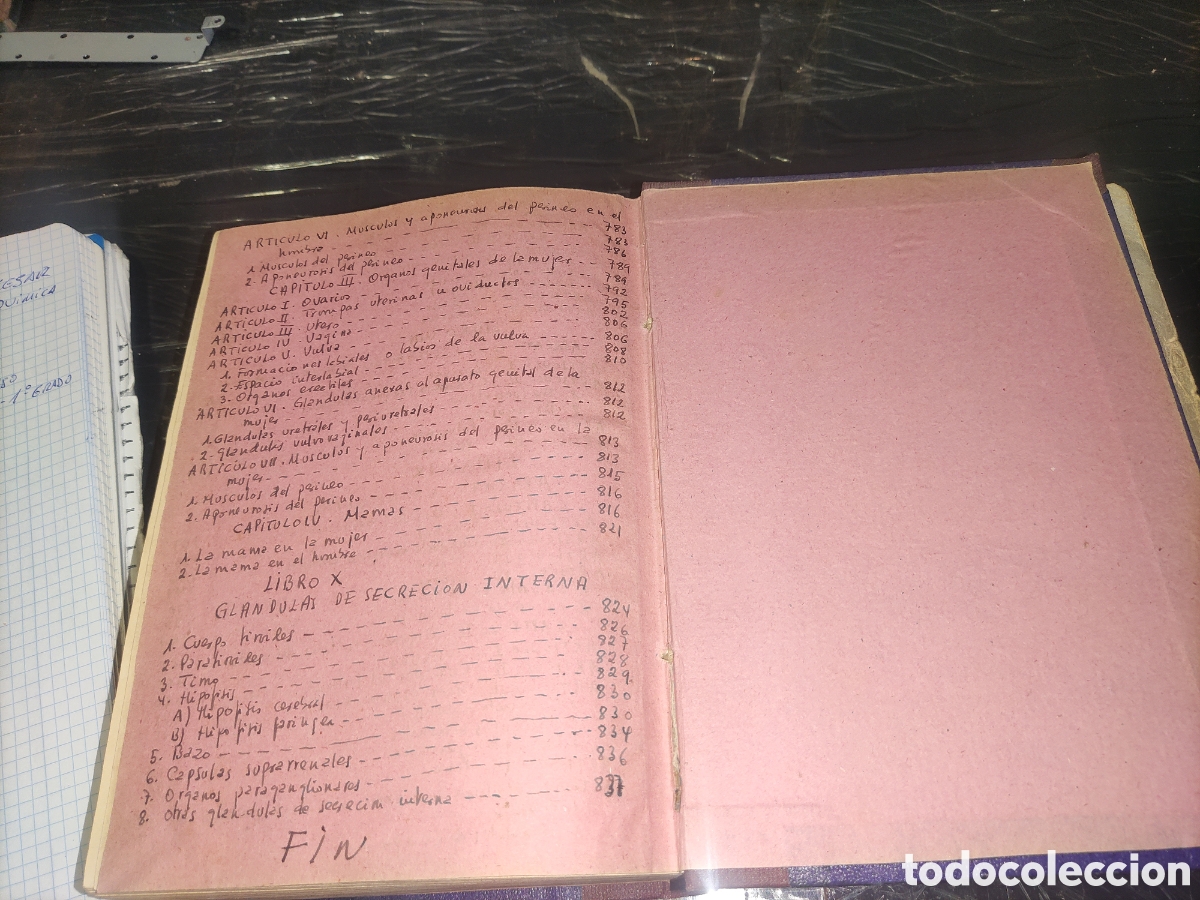 ESAR
QUIMICA
1º GRADO
ARTICULO VI. Musculos y aponeurosis del perineo en el
hombre 783
1. Musculos del perineo 783
2. Aponeurosis del perineo 786
CAPITULO III. Organos genitales de la mujer 789
ARTICULO I. Ovarios 789
ARTICULO II. Trompas uterinas u oviductos 792
ARTICULO III. Utero 795
ARTICULO IV. Vagina 802
ARTICULO V. Vulva 806
1. Formaciones labiales o labios de la vulva 806
2. Espacio interlabial 808
3. Organos erectiles 810
ARTICULO VI. Glandulas anexas al aparato genital de la
mujer 812
1. Glandulas uretrales y periuretrales 812
2. Glandulas vulvovaginales 812
ARTICULO VII. Musculos y aponeurosis del perineo en la
mujer 813
1. Musculos del perineo 813
2. Aponeurosis del perineo 815
CAPITULO IV. Mamas 816
1. La mama en la mujer 816
2. La mama en el hombre 821
LIBRO X
GLANDULAS DE SECRECION INTERNA
1. Cuerpo tiroides 824
2. Paratiroides 826
3. Timo 827
4. Hipofisis 828
A) Hipofisis cerebral 829
B) Hipofisis faringea 830
5. Bazo 830
6. Capsulas suprarrenales 834
7. Organos paraganglionares 836
8. Otras glandulas de secrecion interna 837
FIN
todocoleccion